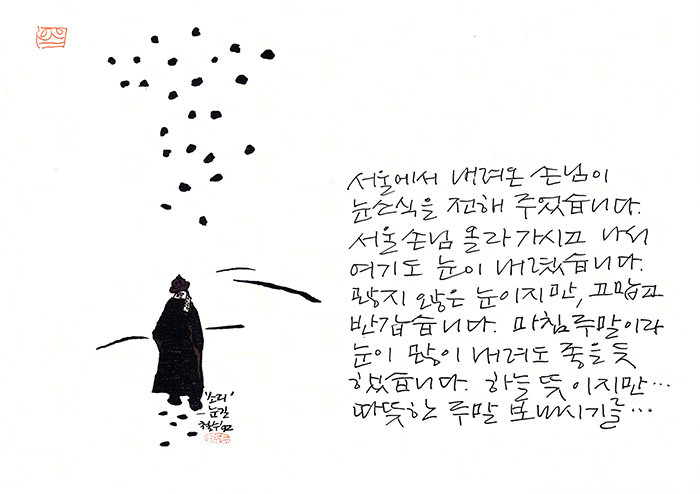 서울에서 내려온 손님이
눈소식을 전해 주었습니다.
서울손님 올라가시고 나서
여기도 눈이 내렸습니다.
많지 않은 눈이지만, 고맙고
반갑습니다. 마침 주말이라
눈이 많이 내려도 좋을 듯
했습니다. 하늘 뜻이지만…
따뜻한 주말 보내시기를…
"소리"
-눈길
철수